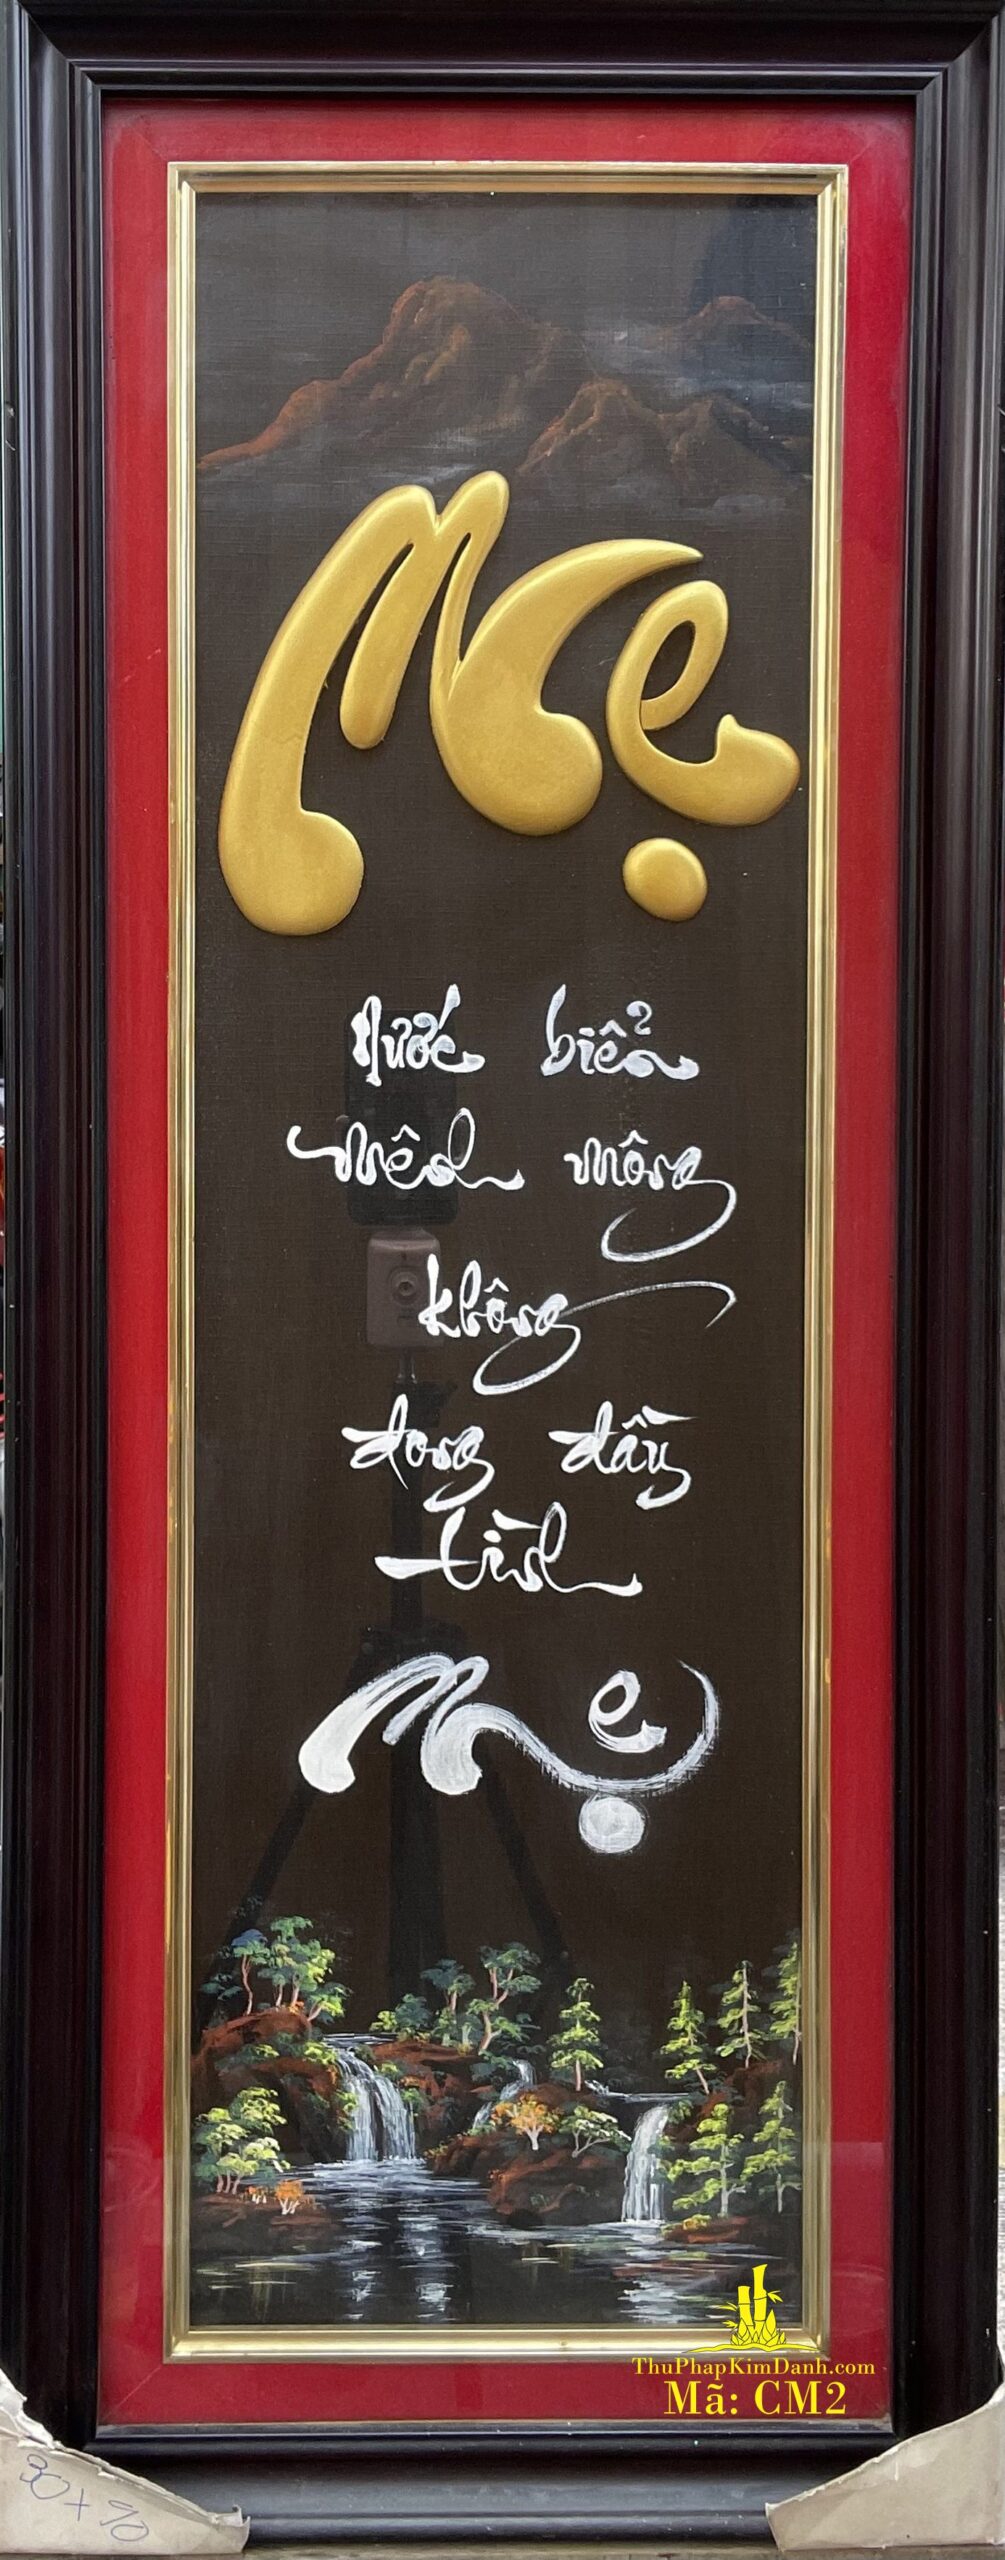 Mẹ
Nước biển
mênh mông
không
đong đầy
tình
Mẹ
ThuPhapKimDanh.com
Mã: CM2
30 + 90